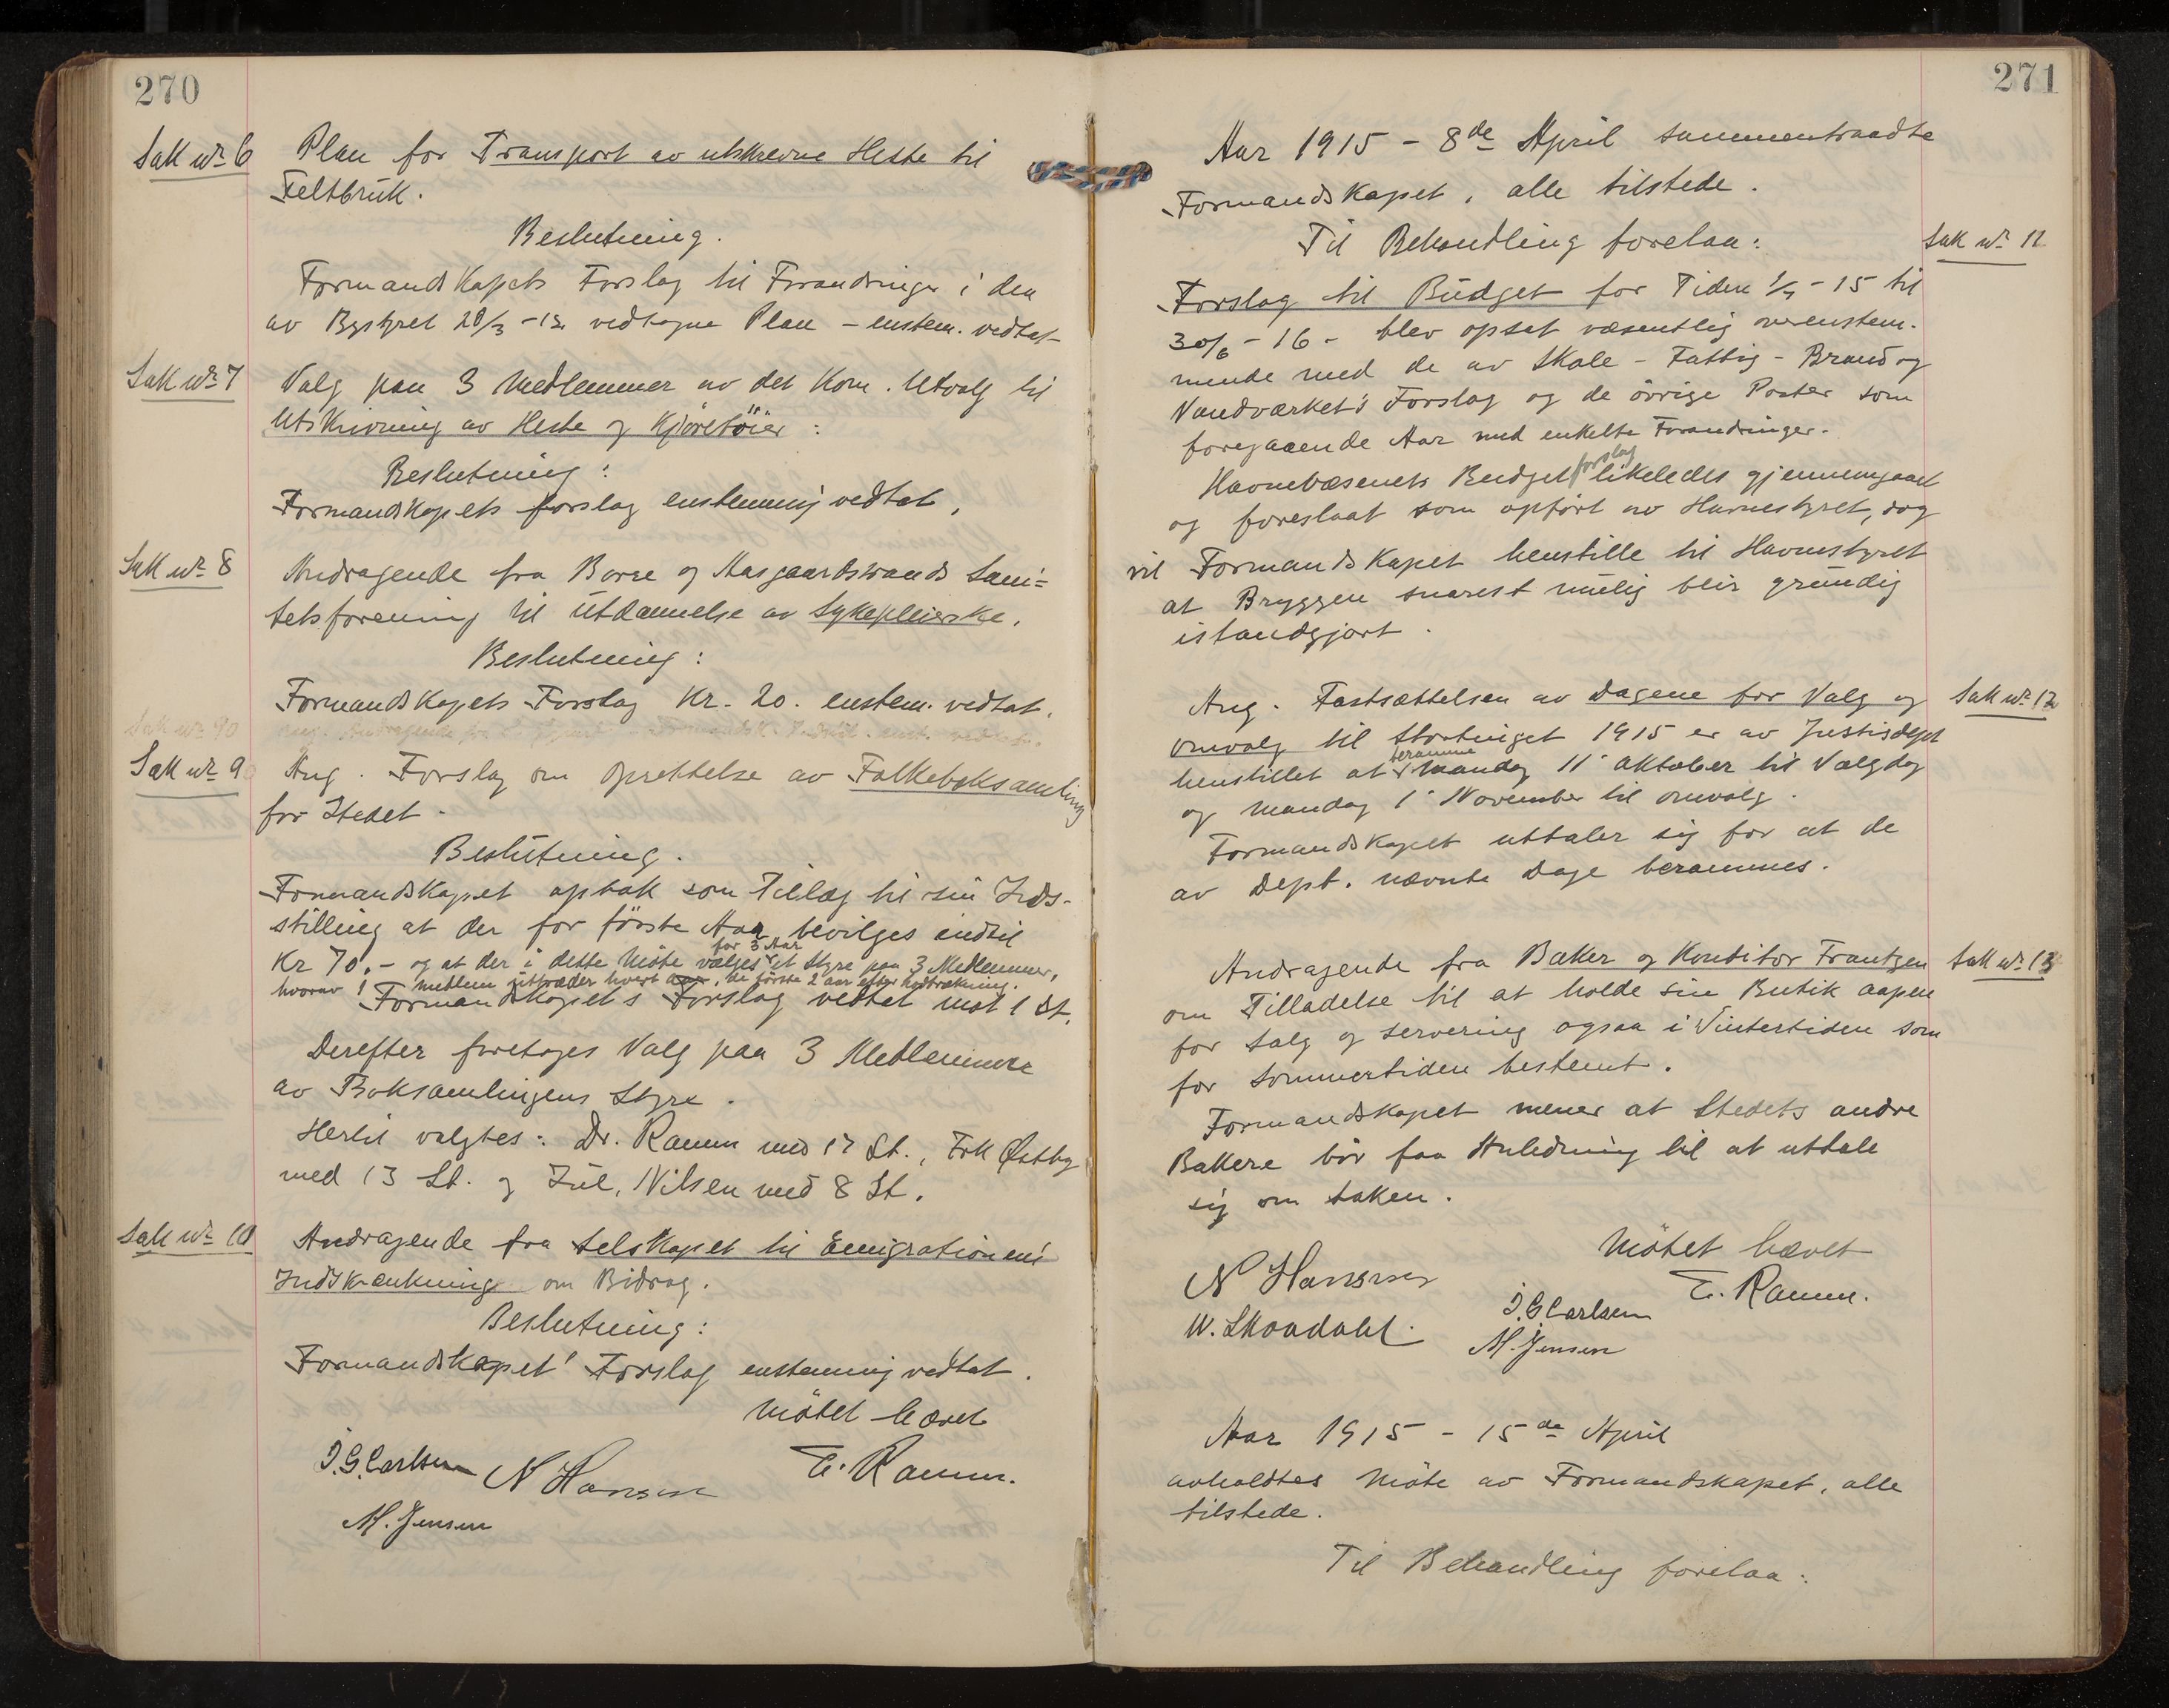 270
Sak nr. 6
Plan for Transport av utskrevne Heste til
Feltbruk.
Beslutning.
Formandskapets Forslag til Forandringer i den
av Bystyret 28/3 - 12 vedtagne Plan - enstem. vedtat
Sak nr. 7
Valg paa 3 Medlemmer av det Kom. Utvalg til
Utskrivning av Heste og Kjöretöier :
Beslutning :
Formandskapets forslag enstemmig vedtat,
Sak nr. 8
Andragende fra Borre og Aasgaardstrands Sani=
tetsforening til Utdannelse av Sykepleierske.
Beslutning :
Formandskapets Forslag Kr. 20. enstem. vedtat.
Sak nr. 9
Ang. Forslag om Oprettelse av Folkeboksamling
for Stedet.
Beslutning.
Formandskapet optok som Tillæg til sin Ind-
stilling at der for förste Aar bevilges indtil
Kr 70.- og at der i dette Möte vælges for 3 Aar et Styre paa 3 Medlemmer,
hvorav 1 medlem uttræder hvert aar, de förste 2 aar efter lodtrækning.
Formandskapets Forslag vedtat mot 1 St.
Derefter foretoges Valg paa 3 Medlemmer
av Boksamlingens Styre.
Hertil valgtes: Dr. Ramm med 17 St., Frk Østby
med 13 St. og Jul. Nilsen med 8 St.
Sak nr. 10
Andragende fra Selskapet til Emigrationens
Indskrænkning om Bidrag.
Beslutning :
Formandskapet' Forslag enstemmig vedtat.
Mötet hævet
J.G. Carlsen N Hansen E. Ramm.
M. Jensen
271
Aar 1915 - 8de April sammentraadte
Formandskapet, alle tilstede.
Til Behandling forelaa :
Sak nr. 11
Forslag til Budget for Tiden 1/7 - 15 til
30/6 - 16 - blev opsat væsentlig overenstem-
mende med de av Skole - Fattig - Brand og
Vandværket's Forslag og de övrige Poster som
foregaaende Aar med enkelte Forandringer.
Havnevæsenets Budget forslag likeledes gjennemgaaet
og foreslaat som opfört av Havnestyret, dog
vil Formandskapet henstille til Havnestyret
at Bryggen snarest mulig blir grundig
istandgjort.
Sak nr. 12
Ang. Fastsættelsen av Dagene for Valg og
Omvalg til Stortinget 1915 er av Justisdept
henstillet at beramme Mandag 11 Oktober til Valgdag
og Mandag 1 November til omvalg.
Formandskapet uttaler sig for at de
av Dept. nævnte Dage berammes.
Sak nr. 13
Andragende fra Baker og Konditor Frantzen
om Tilladelse til at holde sin Butik aapen
for Salg og Servering ogsaa i Vintertiden som
for Sommertiden bestemt.
Formandskapet mener at Stedets andre
Bakere bör faa Anledning til at uttale
sig om Saken.
Mötet hævet
N Hansen E. Ramm.
W. Skoudahl. J.G Carlsen
M. Jensen
Aar 1915 - 15de April
avholdtes Möte av Formandskapet, alle
tilstede.
Til Behandling forelaa :